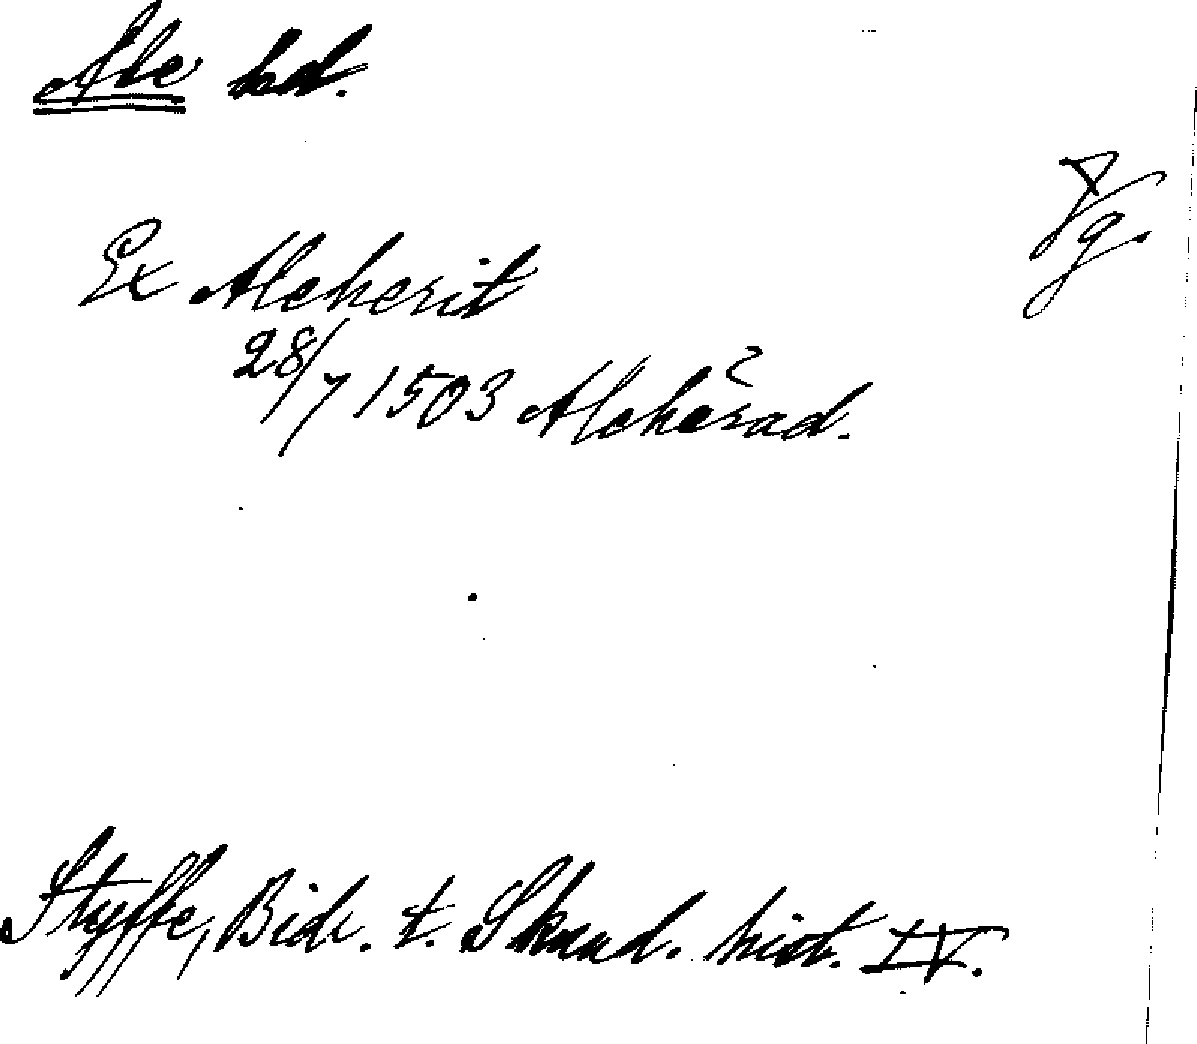 Ale hd.
Vg.
Ex Aleherit
28/7 1503 Alehärad.
Styffe, Bidr. t. Skand. hist. IV.